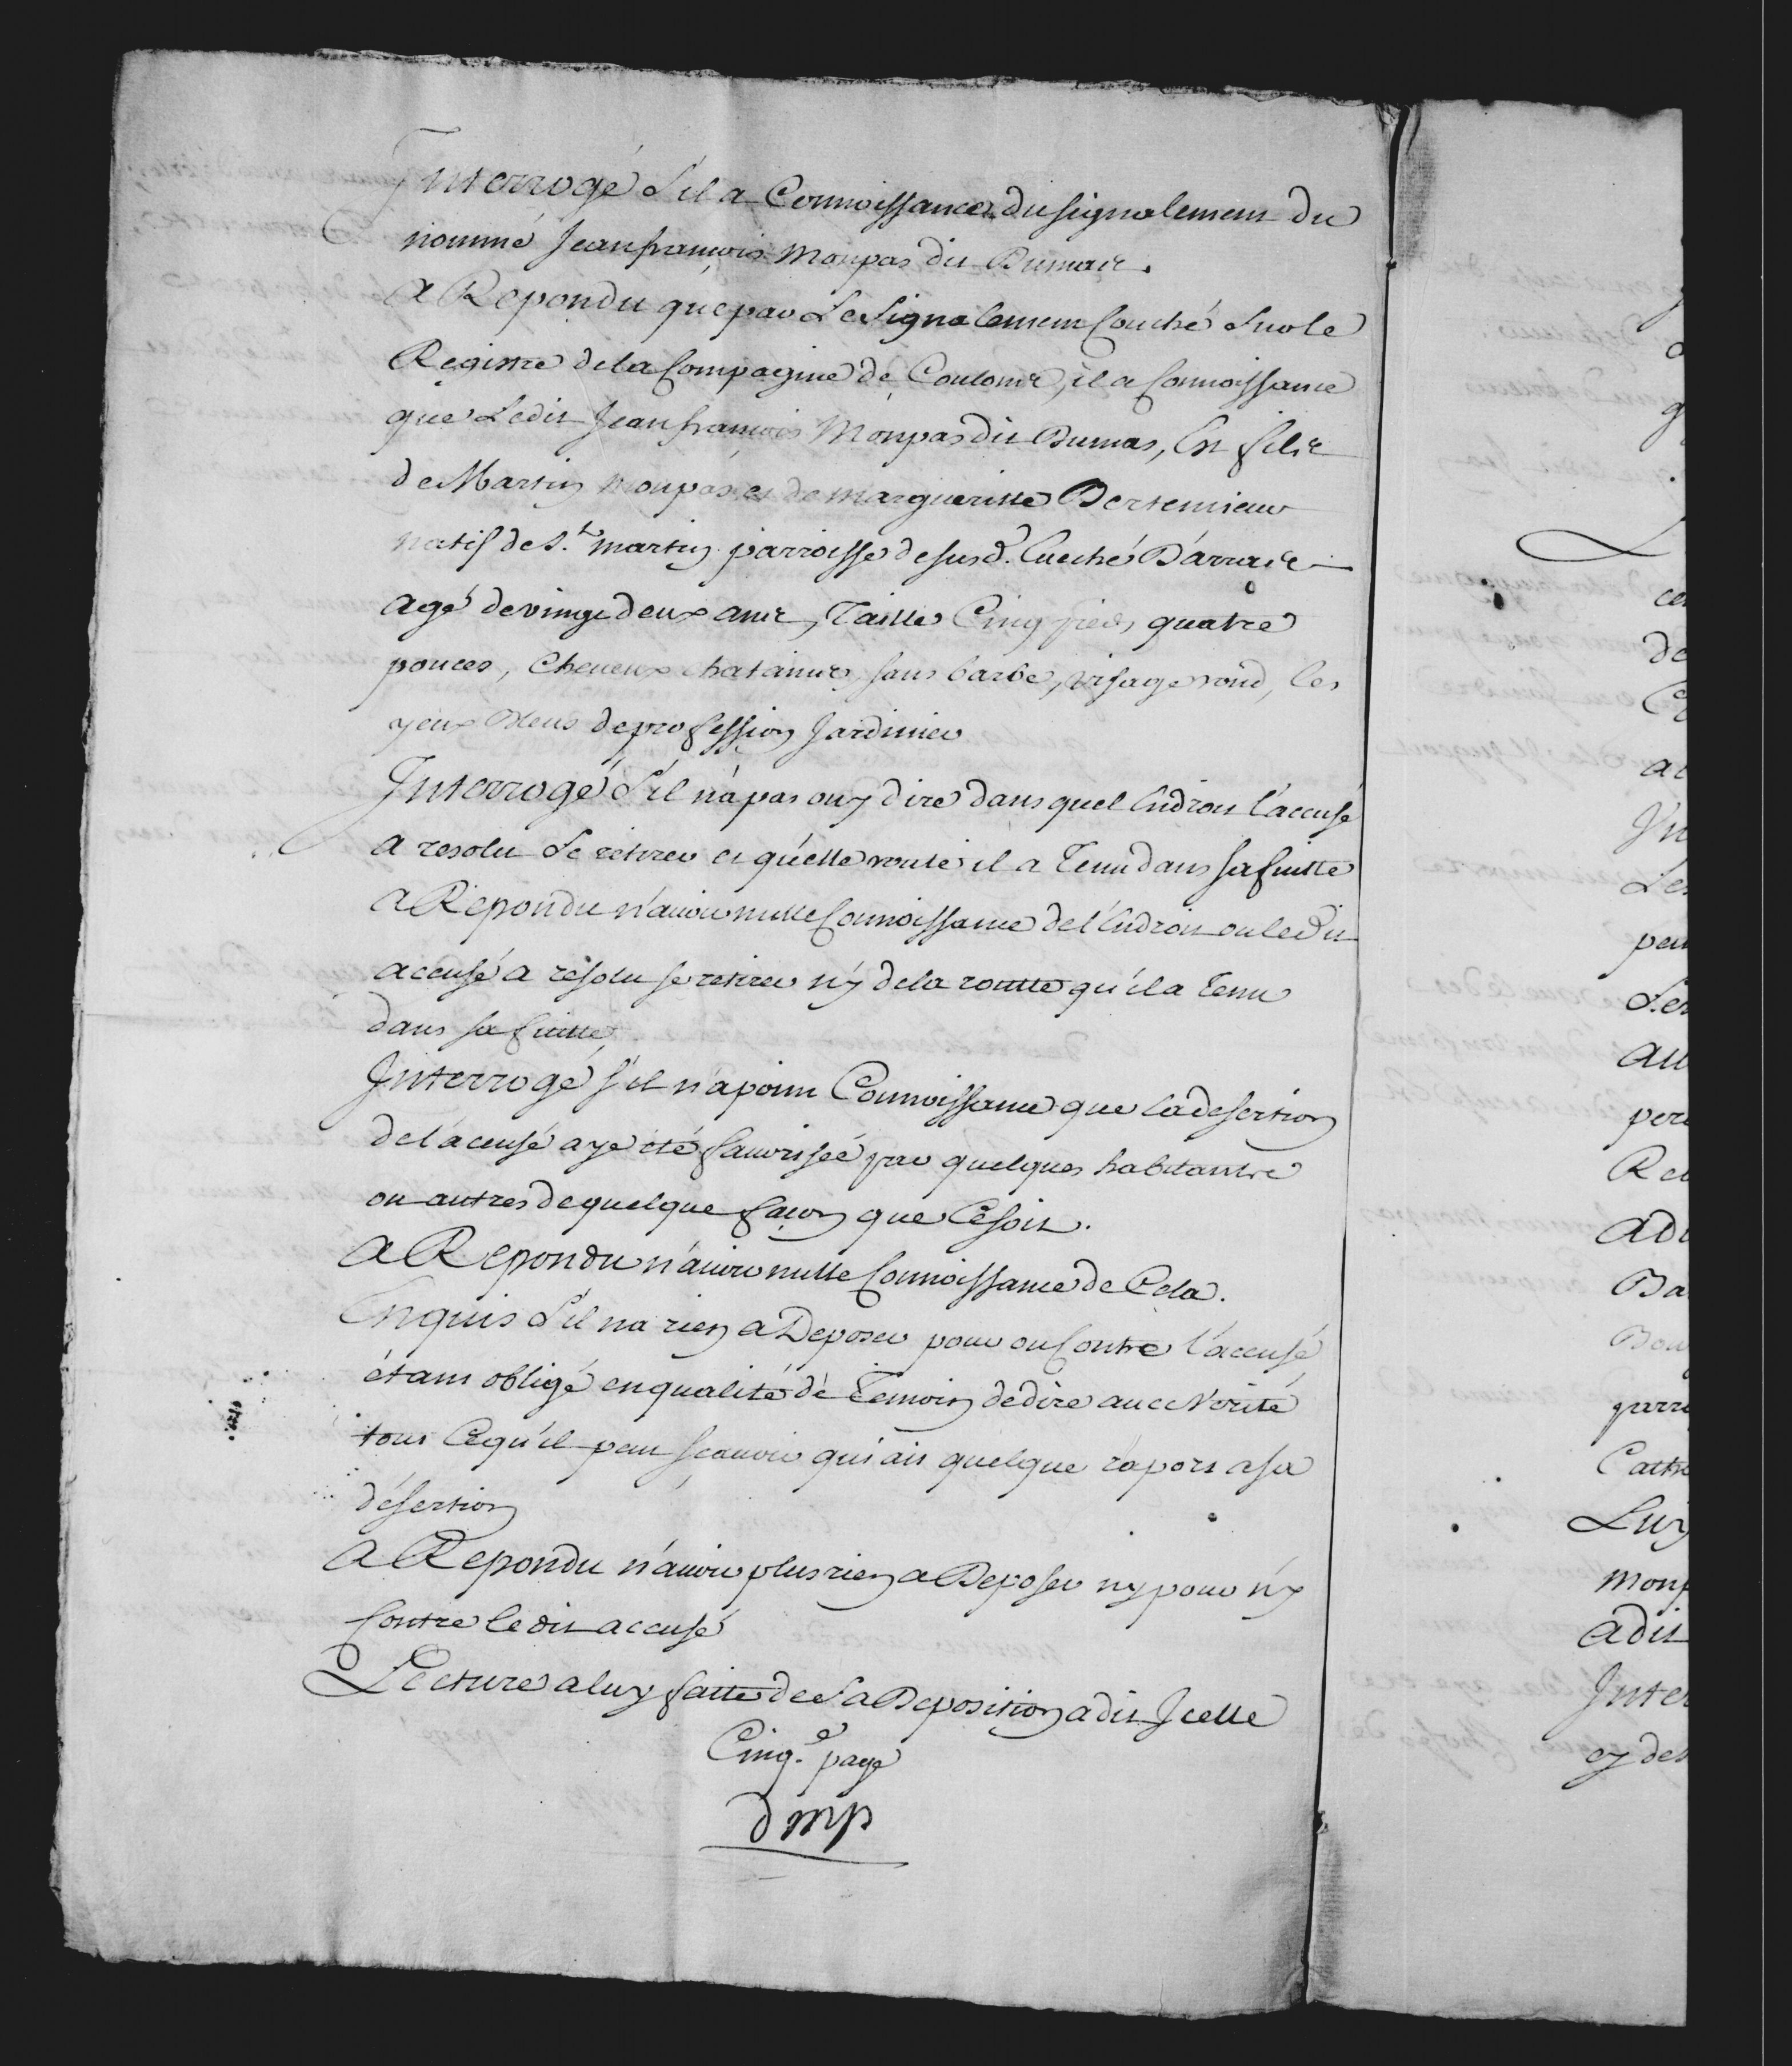 Interrogé s'il a Connoissance du signalement du
nommé Jean françois Monpas dit Dumas.
a Repondu que par Le Signalement Couché sur le
Registre de la Compagnie de Coulons, il a Connoissance
que Ledit Jean françois Monpas dit Dumas, Est fils
de Martin Monpas et de margueritte
natif de S.t martin parroisse desusd. Eveché D'arras
agé de vingt deux ans, Taille Cinq pieds quatre
pouces, Cheveux chatains, sans barbe, visage rond, les
yeux bleus de profession Jardinier
Interrogé s'il n'a pas ouy dire dans quel Endroit l'accusé
a resolu Se retirer et qu'elle route il a Tenu dans sa fuitte
a Repondu n'avoir nulle Connoissance de l'Endroit ou ledit
accusé a résolu se retirer n'y de la routte qu'il a Tenu
dans sa fuitte,
Interrogé s'il n'a point Connoissance que la desertion
de l'accusé aye été favorisée par quelques habitants
ou autres de quelque façon que Ce soit.
a Repondu n'avoir nulle Connoissance de Cela.
Enquis s'il na rien a Deposer pour ou Contre l'accusé
étant obligé en qualité de Temoin de dire avec Verité
tout Ce qu'il peut sçavoir qui ait quelque raport a sa
désertion
a Repondu n'avoir plus rien a Deposer ny pour n'y
Contre le dit accusé
Lecture a luy faitte de Sa Deposition a dit Icelle
Cinq.e page
dmp